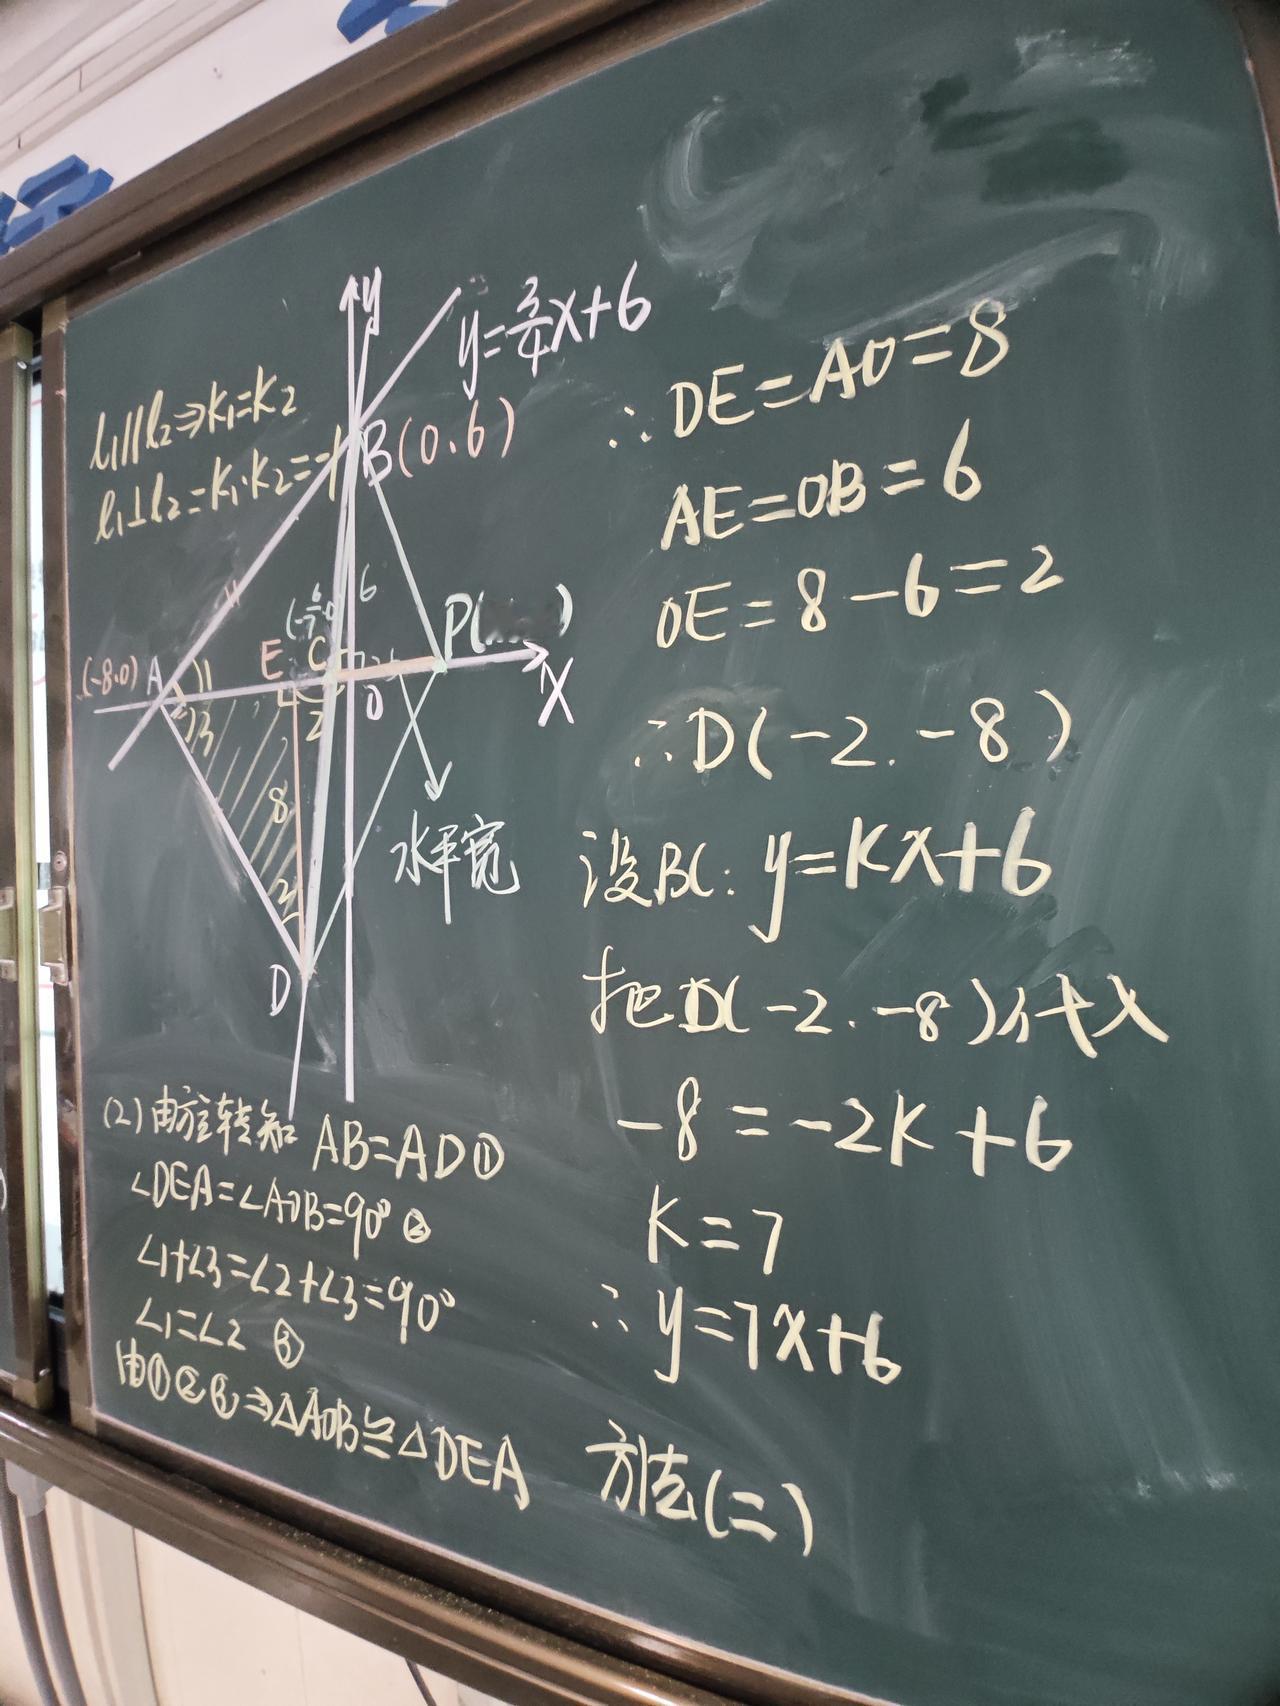 l₁∥l₂⇒K₁=K₂
l₁⊥l₂=K₁·K₂=-1
y
y=3/4x+6
B(0.6)
(-6/7.0)
6
P(
(-8.0) A
1
E
C
O
X
3
2
8
2
水平宽
D
(2)由旋转知 AB=AD①
∠DEA=∠AOB=90°②
∠1+∠3=∠2+∠3=90°
∠1=∠2 ③
由①②③⇒△AOB≌△DEA
∴DE=AO=8
AE=OB=6
OE=8-6=2
∴D(-2.-8)
设BC:y=Kx+6
把D(-2.-8)代入
-8=-2K+6
K=7
∴y=7x+6
方法(二)